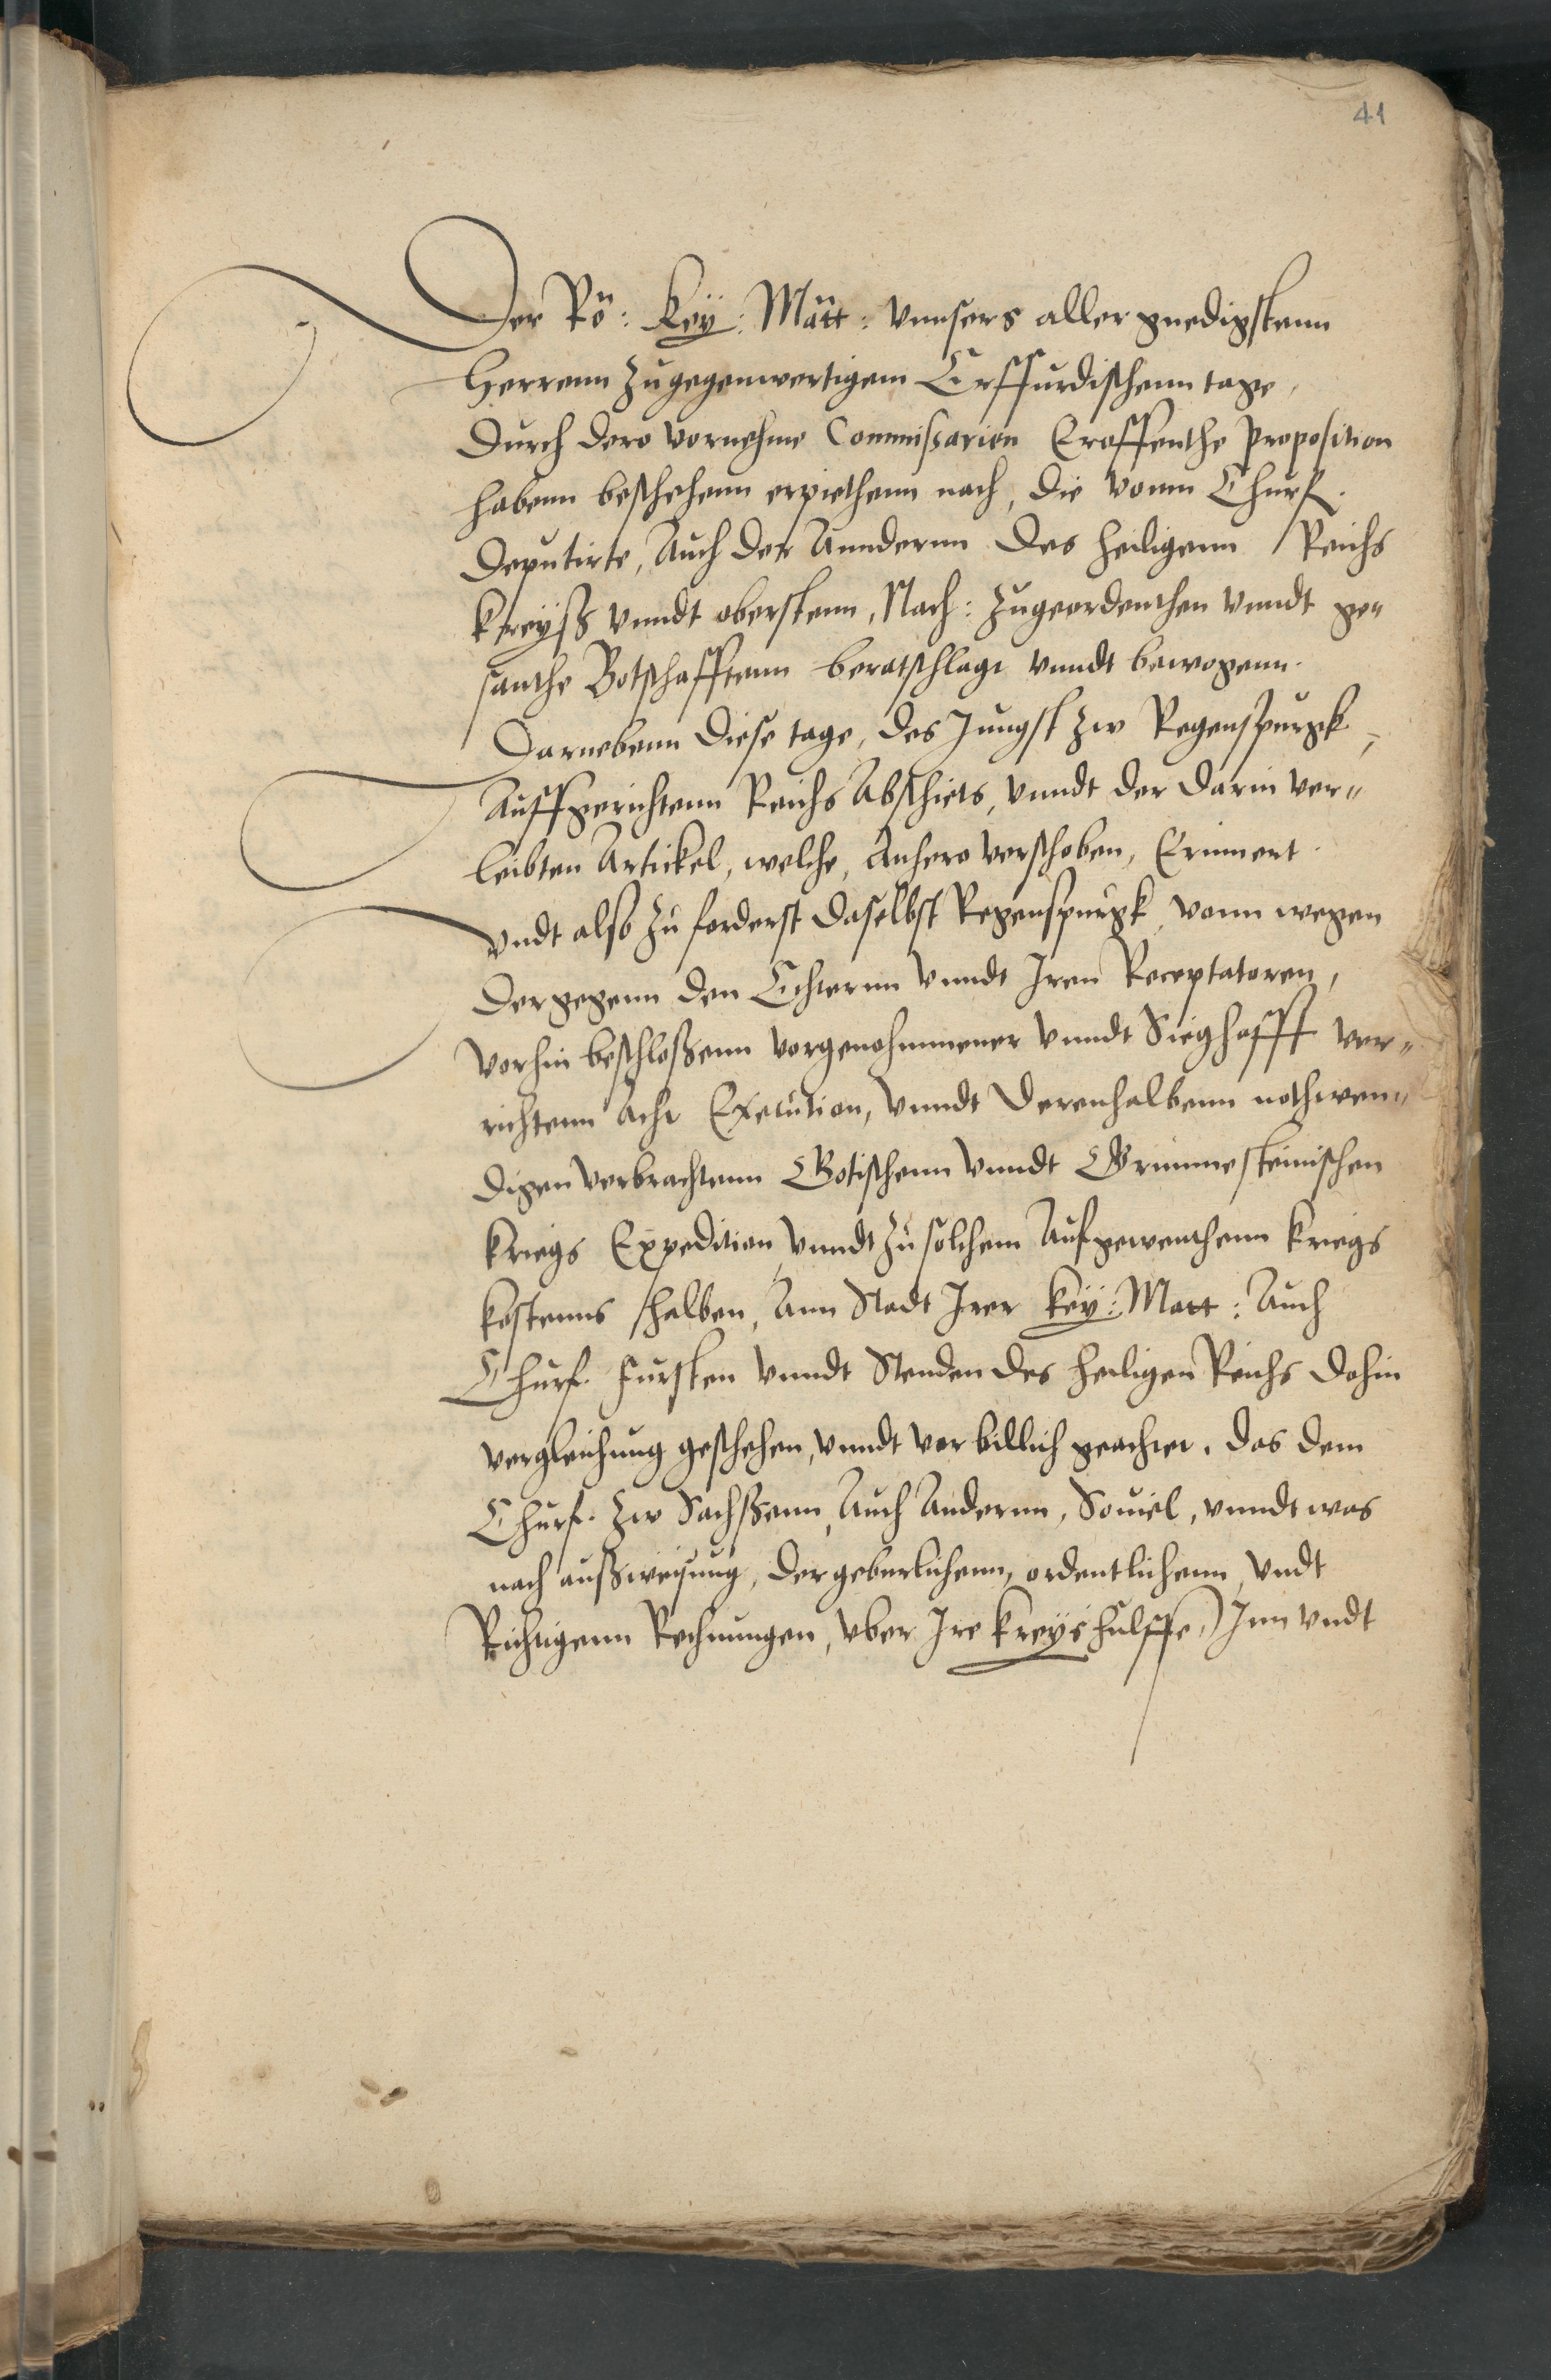 41
Der Rö: Key: Matt: vnnsers aller gnedigstenn
Herrenn zugegenwertigem Erffurdischenn tage,
Durch dero vornehme Commißarien Eroffenthe Proposition
habenn beschehenn erpiethenn nach, die vonn Churf.
Deputirte, Auch der Anndernn des heiligenn Reichs
kreyß vnndt oberstenn, Nach: zugeordenthen vnndt ge"
santhe Botschafftenn beratschlagt vnndt bewogenn.
Darnebenn diese tage, des Jungst zw Regenspurgk,
Auffgerichtenn Reichs Abschiets, vnndt der darin ver"
leibten Artickel, welche, Anhero verschoben, Erinnert.
Vndt also zu forderst daselbst Regenspurgk, vonn wegen
der gegenn den Echternn vnndt Iren Receptatoren,
vorhin beschloßenn vorgenohmmener vnndt Sieghafft ver"
richtenn Acht Execution, vnndt derenhalbenn nothwen"
digen verbrachtenn Gotischenn vnndt Grimmesteinischen
kriegs Expedition, vnndt zu solchem Aufgewenthenn kriegs
kostenns halben, Ann Stadt Irer Key: Matt: Auch
Churf. Fursten vnndt Stenden des heiligen Reichs dohin
vergleichung geschehen, vnndt vor billich geachtet. das dem
Churf. zw Sachßenn, Auch Andernn, Souiel, vnndt was
nach außweisung, der geburlichenn, ordentlichenn, vndt
Richtigenn Rechnungen, vber Ire kreyshulffe, Inn vndt